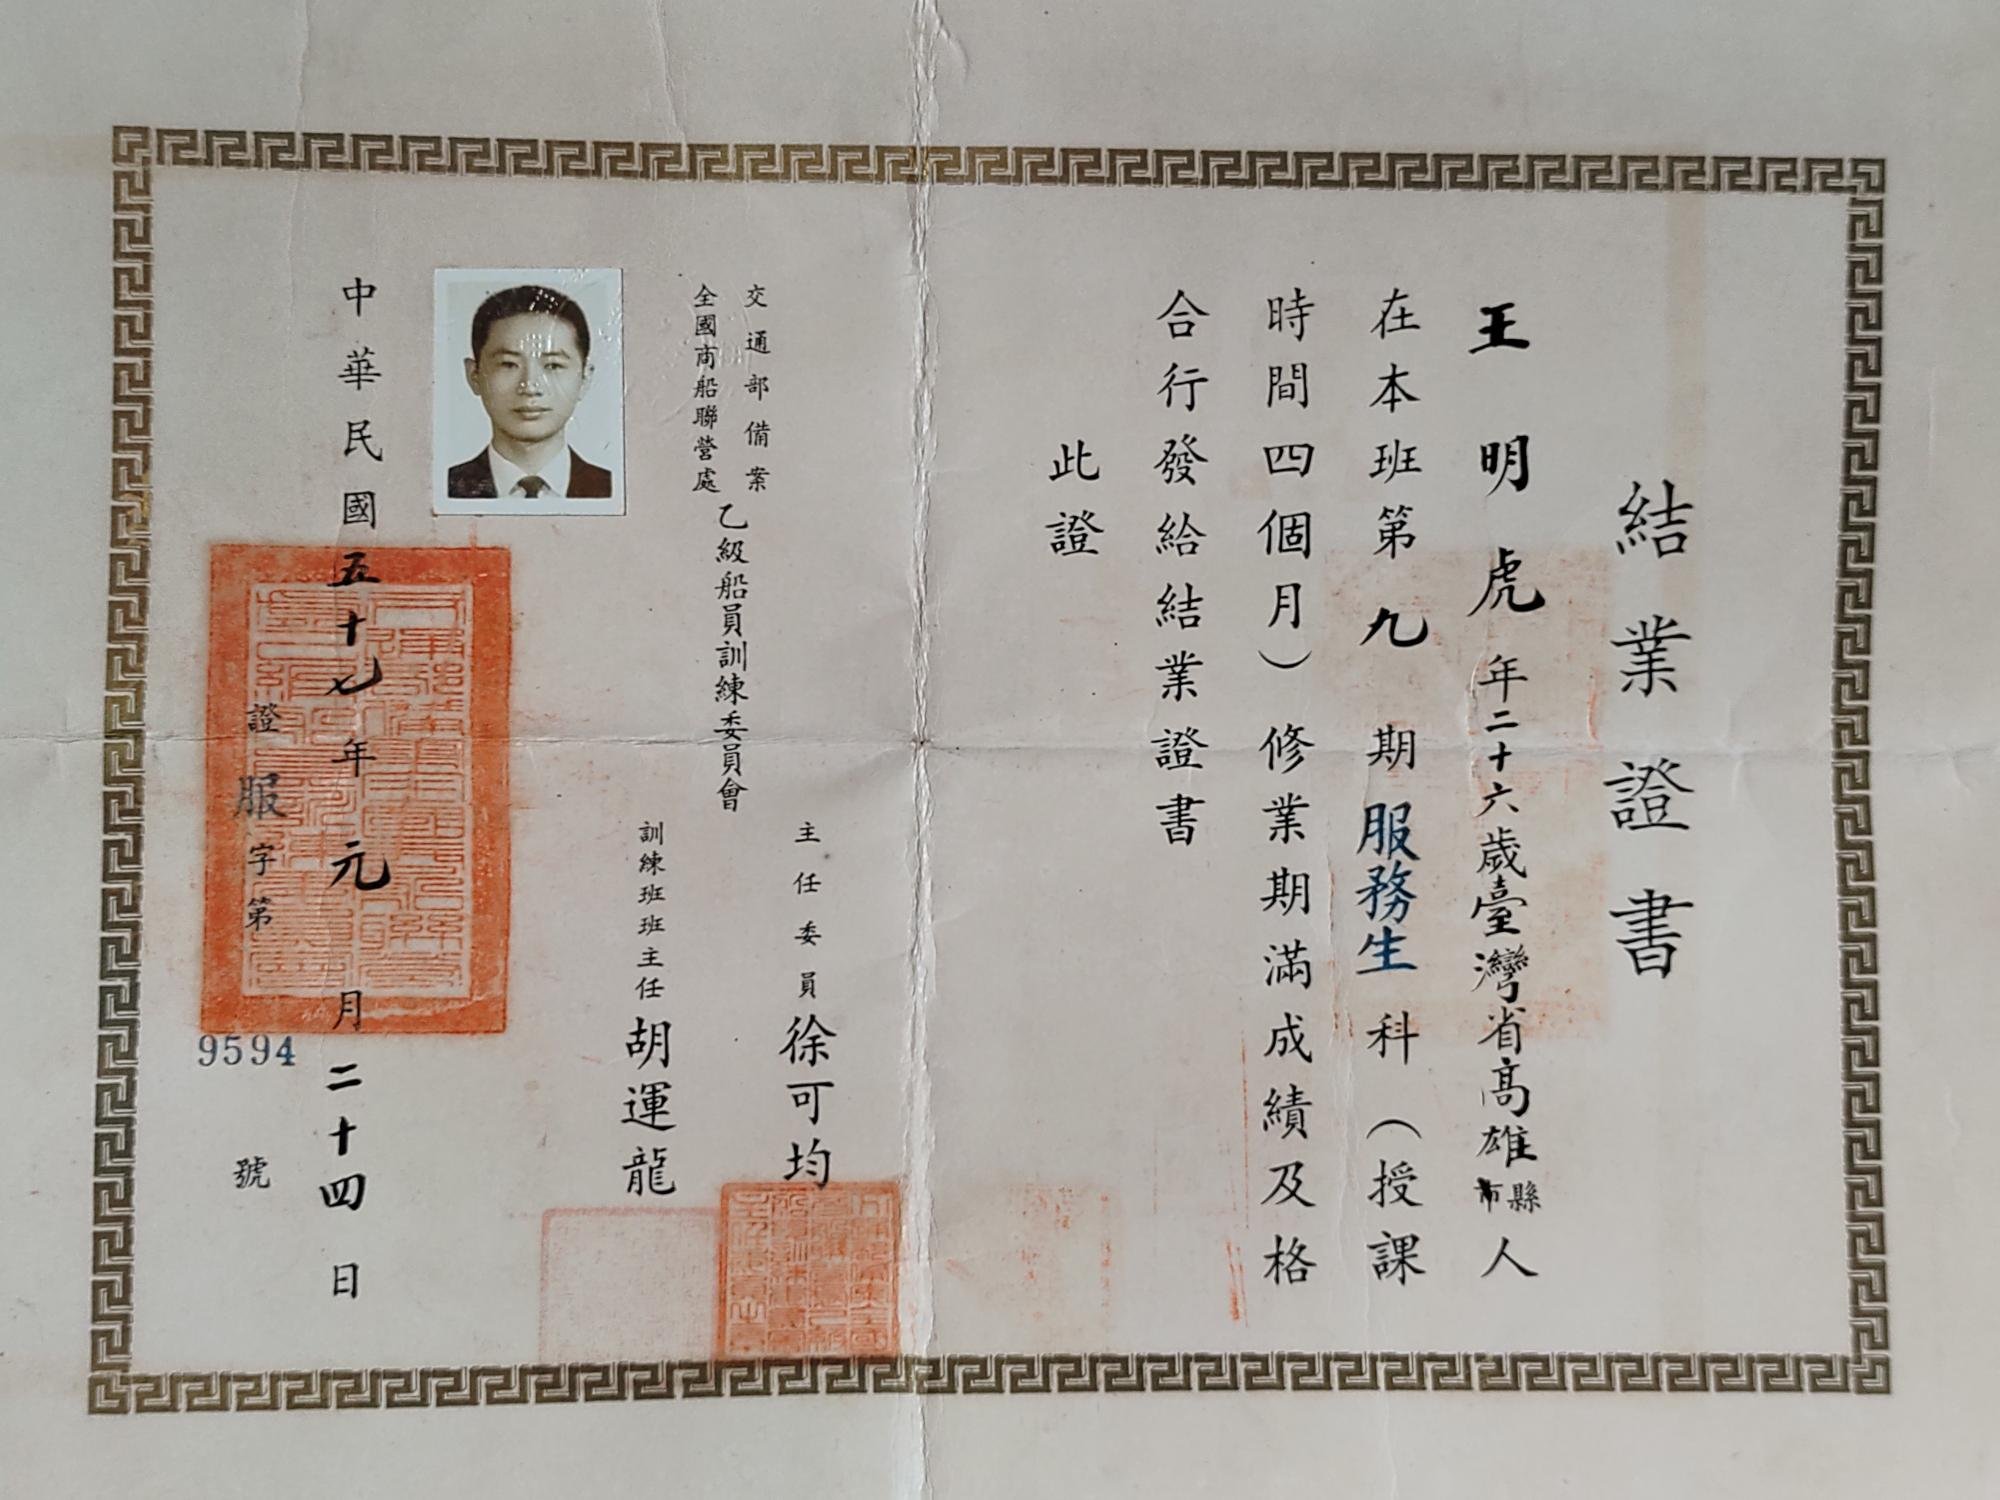 結業證書
王明虎年二十六歲臺灣省高雄縣市人
在本班第九期服務生科（授課
時間四個月）修業期滿成績及格
合行發給結業證書
此證
交通部備案
全國商船聯營處
乙級船員訓練委員會
主任委員徐可均
訓練班班主任胡運龍
中華民國五十七年元月二十四日
證服字第9594號